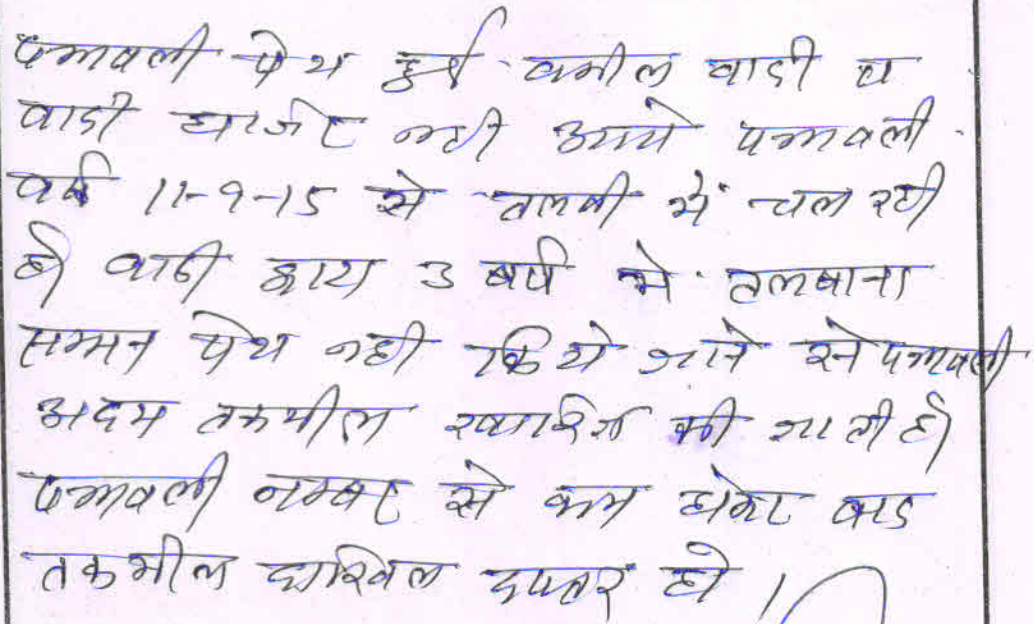 पत्रावली पेश हुई वकील वादी व
वादी हाजिर नही आये पत्रावली
वर्ष 11-9-15 से तलबी में चल रही
है वादी द्वारा 3 वर्ष से तलबाना
सम्मन पेश नही किये जाने से पत्रावली
अदम तकमील खारिज की जाती है
पत्रावली नम्बर से कम होकर बाद
तकमील दाखिल दफ्तर हो।